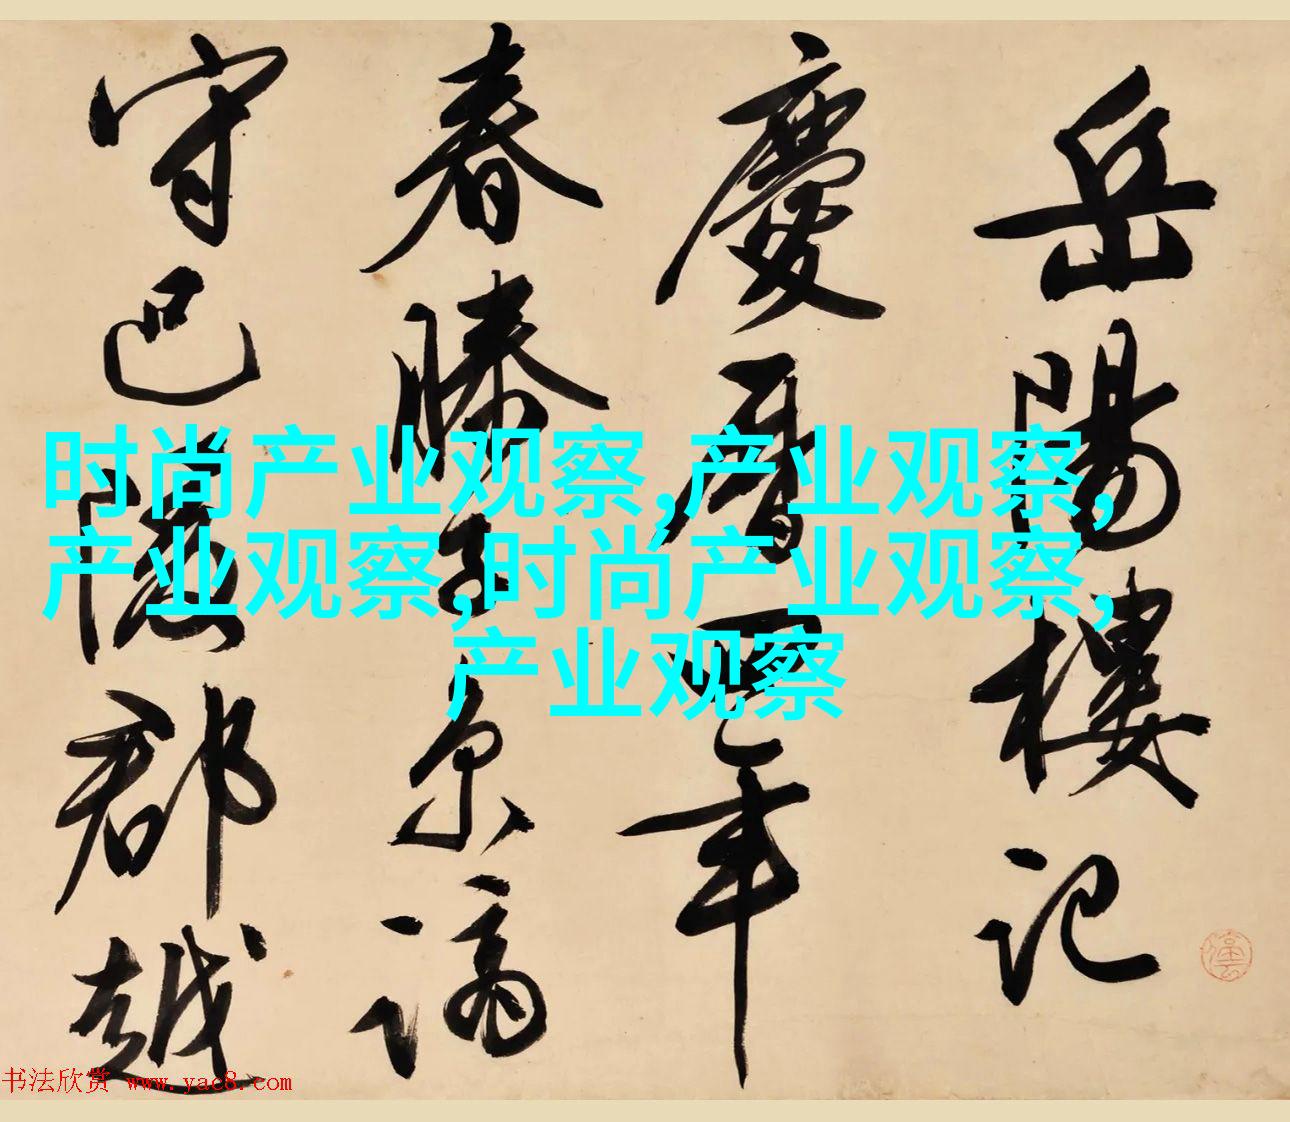 岳陽樓記
慶曆四年
春滕子京謫
守巴陵郡越
时尚产业观察,产业观察,
产业观察,时尚产业观察,
产业观察
书法欣赏 www.yac8.com